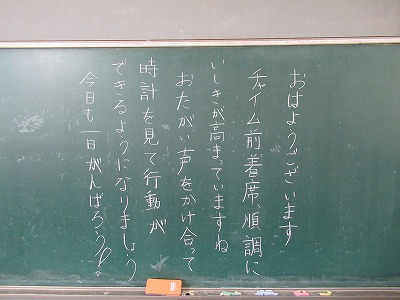 おはようございます
チャイム前着席、順調に
いしきが高まっていますね。
おたがい声をかけ合って
時計を見て行動が
できるようになりましょう
今日も一日がんばろう!